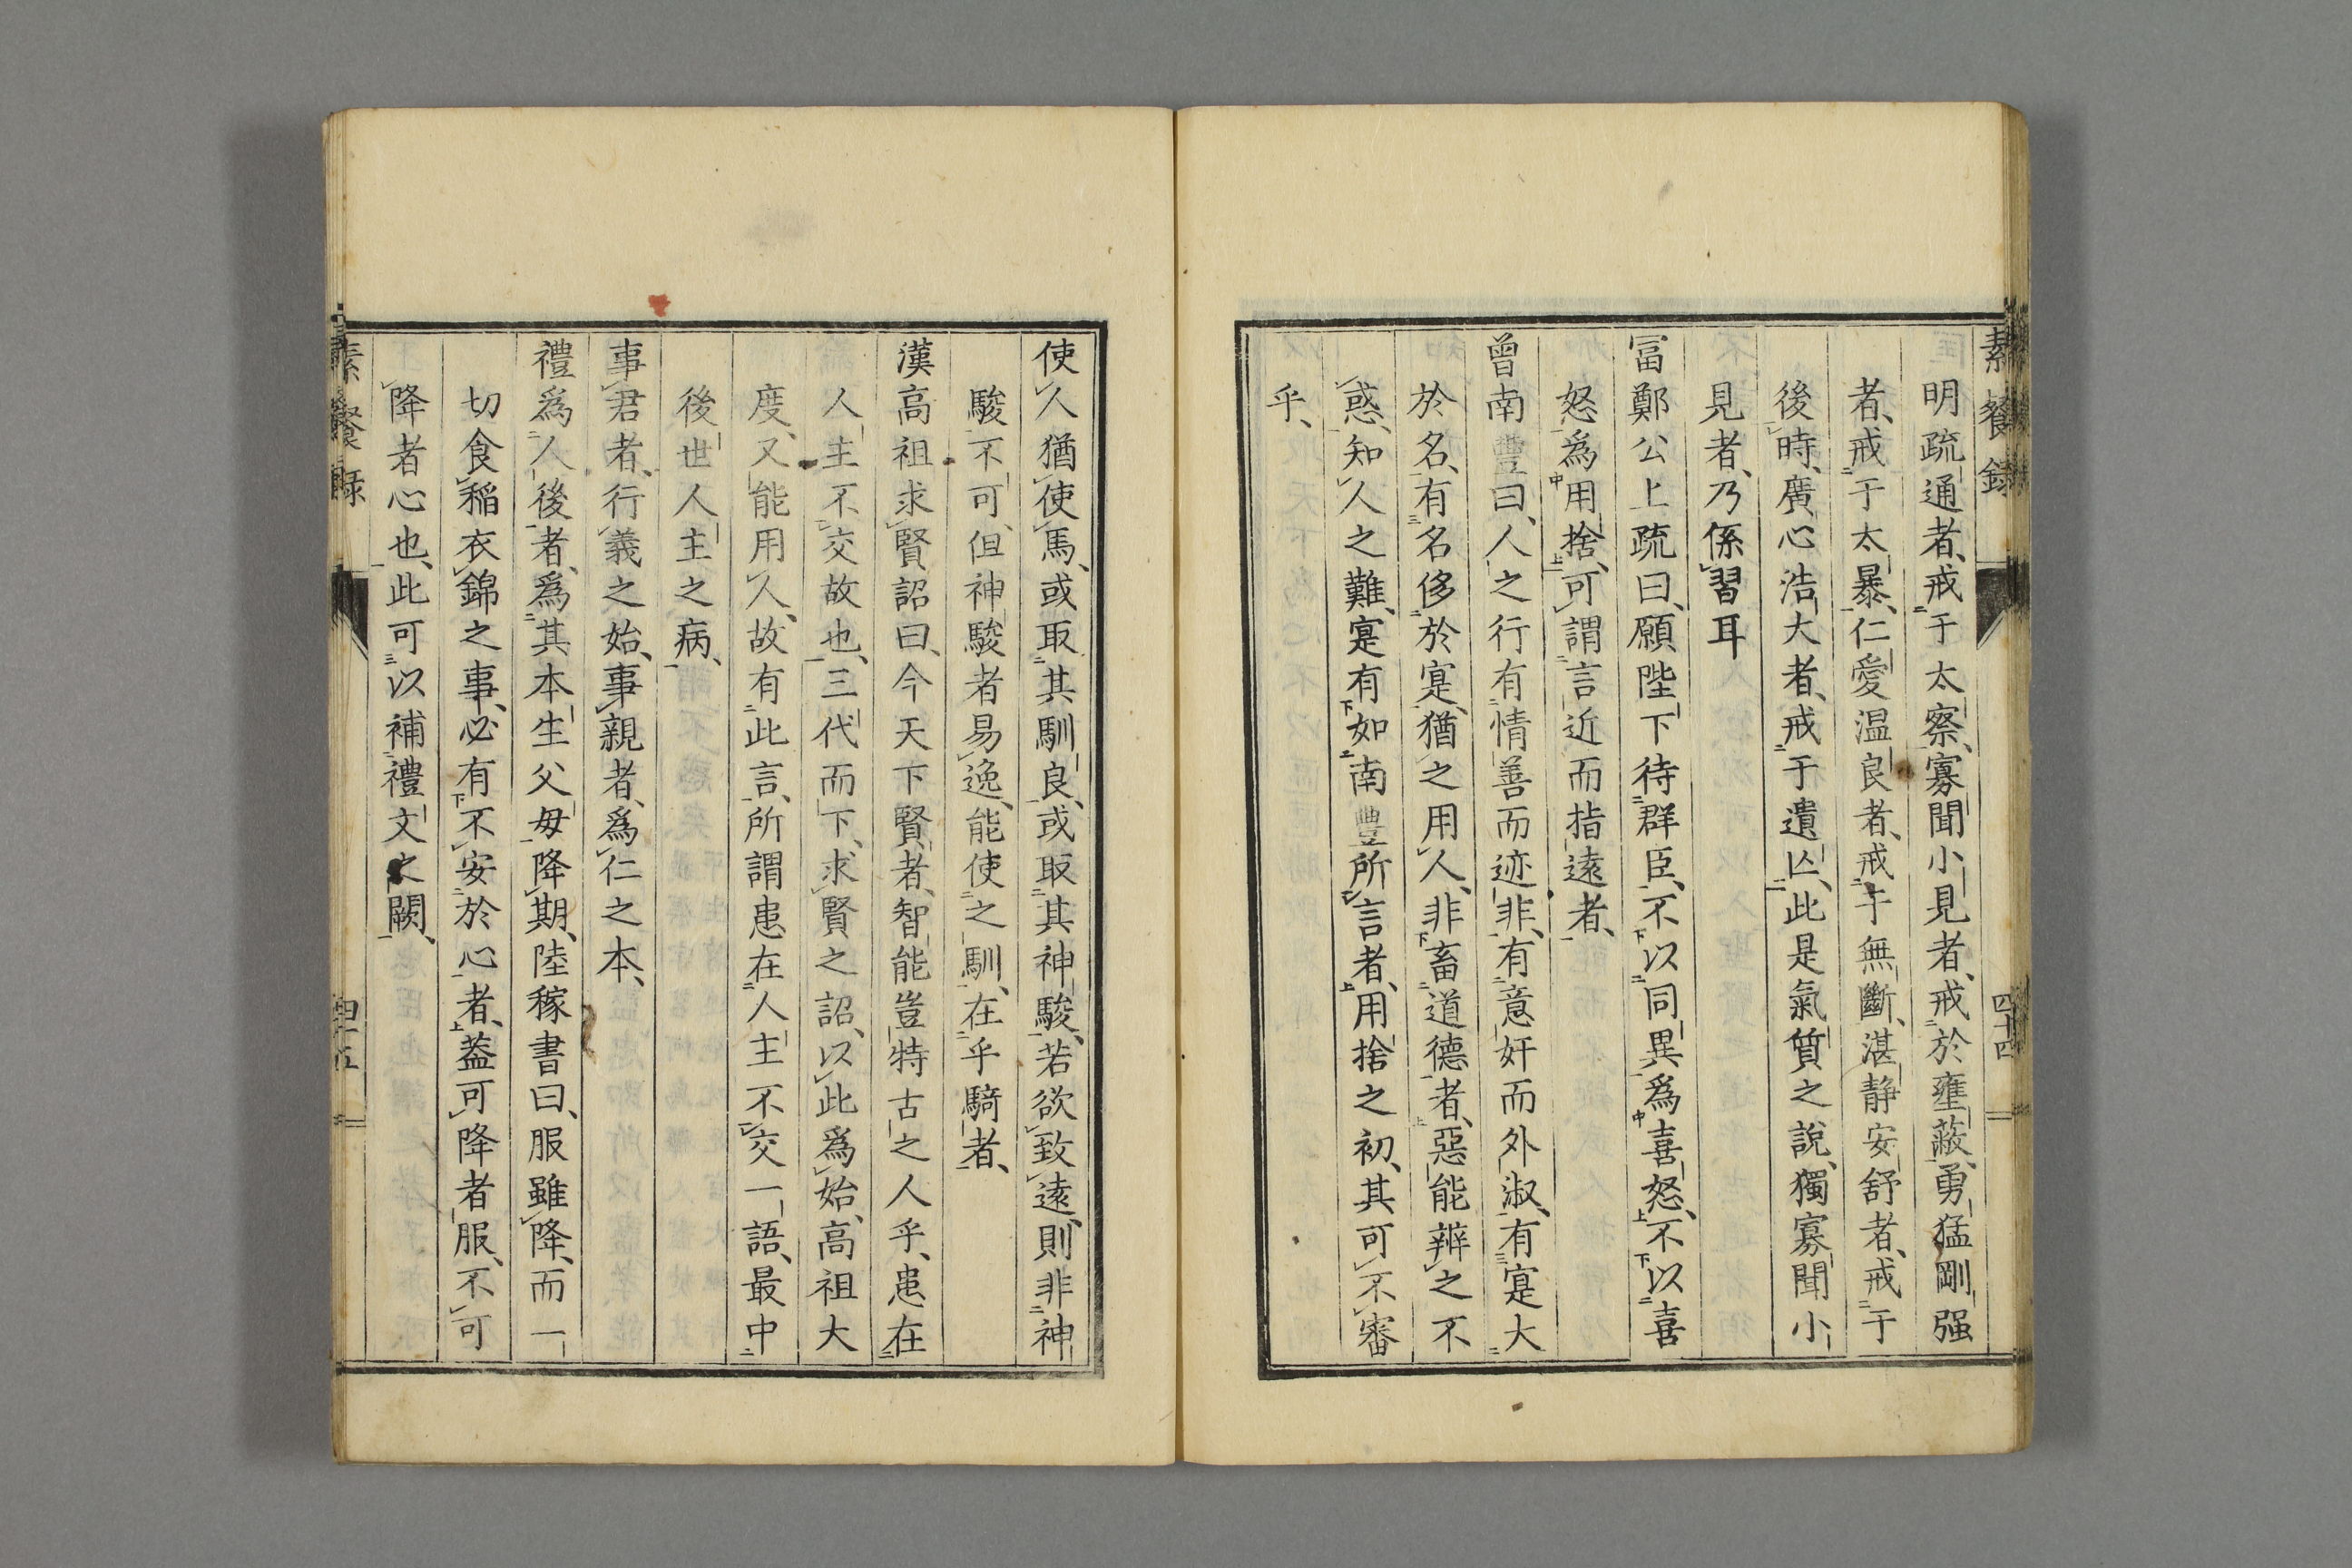 素餐錄
四十四
明疏通者、戒于太察、寡聞小見者、戒於壅蔽、勇猛剛强
者、戒于太暴、仁愛温良者、戒于無斷、湛静安舒者、戒于
後時、廣心浩大者、戒于遺亾、此是氣質之說、獨寡聞小
見者、乃係習耳
冨鄭公上疏曰、願陛下待群臣、不以同異爲喜怒、不以喜
怒爲用捨、可謂言近而指遠者、
曾南豐曰、人之行有情善而迹非、有意奸而外淑、有寔大
於名、有名侈於寔、猶之用人、非畜道德者、惡能辨之不
惑、知人之難、寔有如南豐所言者、用捨之初、其可不審
乎、
使人猶使馬、或取其馴良、或取其神駿、若欲致遠、則非神
駿不可、但神駿者易逸、能使之馴、在乎騎者、
漢高祖求賢詔曰、今天下賢者、智能豈特古之人乎、患在
人主不交故也、三代而下、求賢之詔、以此爲始、高祖大
度、又能用人、故有此言、所謂患在人主不交一語、最中
後世人主之病、
事君者、行義之始、事親者、爲仁之本、
禮爲人後者、爲其本生父毋降期、陸稼書曰、服雖降、而一
切食稲衣錦之事、必有不安於心者、葢可降者服、不可
降者心也、此可以補禮文之闕、
素餐録
四十五